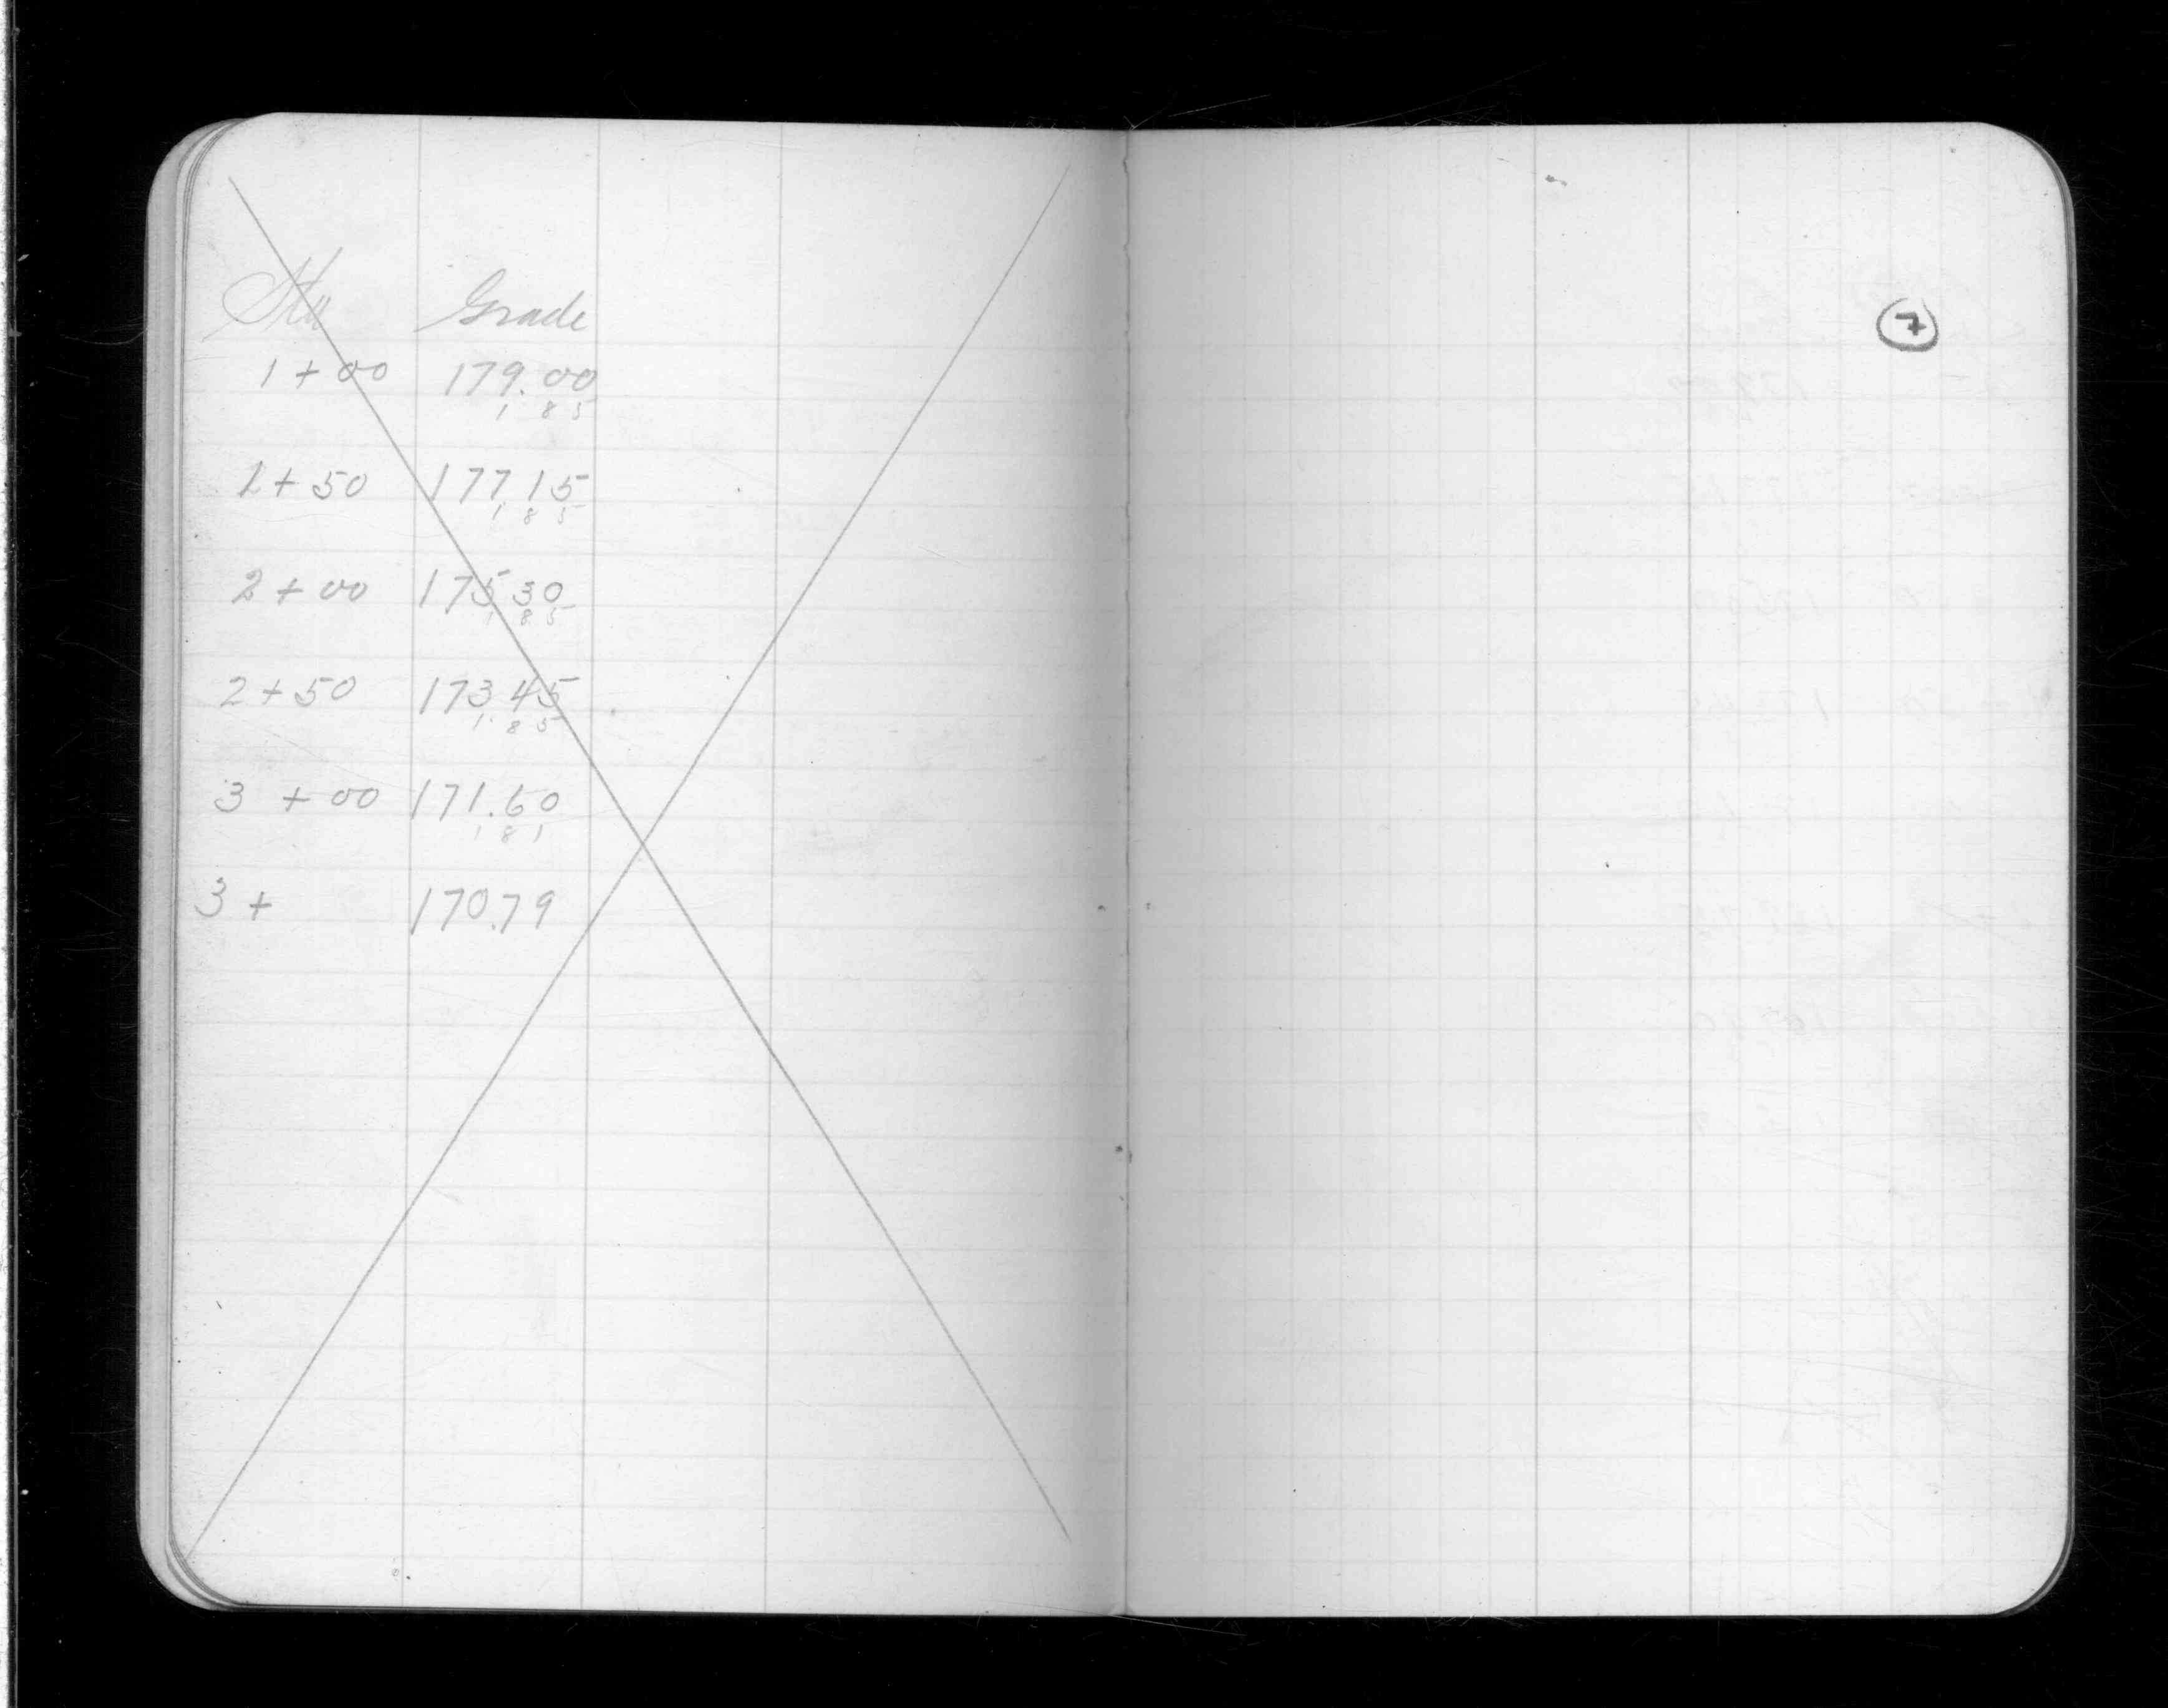 Sta Grade
1+00 179.00
1 8 5
1+50 177.15
1 8 5
2+00 175 30
1 8 5
2+50 173 45
1 8 5
3+00 171.60
1 8 1
3+ 170.79
7